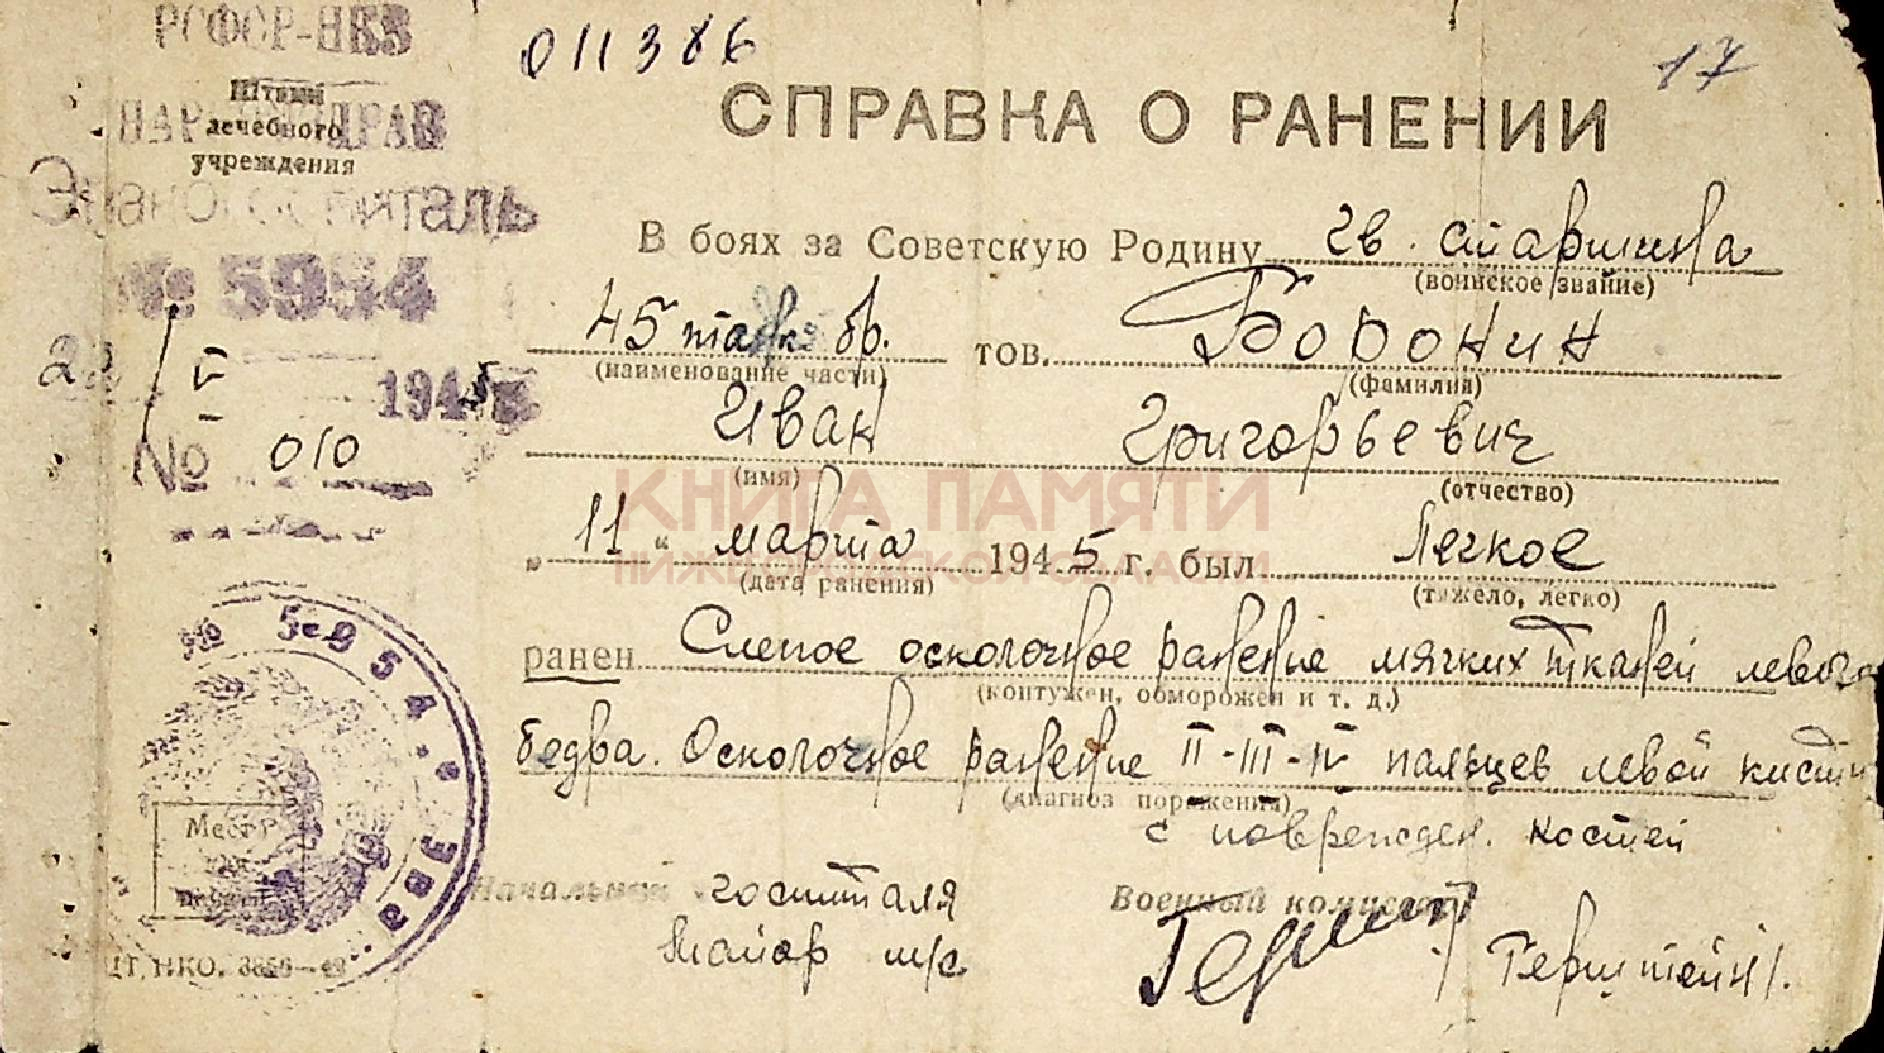 РСФСР-НКЗ
Штамп
лечебного
учреждения
Эвакогоспиталь
№ 5954
V 1945
№ 010
011386
17
СПРАВКА О РАНЕНИИ
В боях за Советскую Родину гв. старшина
(воинское звание)
45 танк. бр. тов. Воронин
(наименование части) (фамилия)
Иван Григорьевич
(имя) (отчество)
КНИГА ПАМЯТИ
НИЖЕГОРОДСКОЙ ОБЛАСТИ
„ 11 “ марта 1945 г. был Легкое
(дата ранения) (тяжело, легко)
ранен Слепое осколочное ранение мягких тканей левого
(контужен, обморожен и т. д.)
бедра. Осколочное ранение II-III-IV пальцев левой кисти
(диагноз поражения)
с поврежден. костей
Начальник госпиталя
Военный комиссар
майор м/с
Герштейн
№ 5954 * Эва
Место
для
печати
НКО.